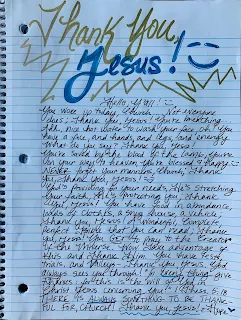 Thank You,
Jesus!
Hello, Y'all!
You woke up today, Church. Not everyone
does; Thank you, Jesus! You're breathing...
Ahh, nice hot water to wash your face, oh! You
have a face, and hands, and legs, and energy.
What do you say? Thank you, Jesus!
You're saved by the blood of the Lamb, you're
on your way to heaven, you're blessed & happy.
NEVER forget your manners, Church; Thank
you, Thank you, Jesus!
God's providing for your needs, He's stretching
your faith, He's protecting you. Thank
you, Jesus! You have food in abundance,
loads of clothes, a snug house, a vehicle;
Thank you, Jesus! A wonderful, complete,
perfect Bible that you can read; Thank
you, Jesus! You get to pray to the Creator
of the Universe. Now, take advantage of
this and thank Him. You have tests,
trials, and
Thank you, Jesus, God
always sees you through! "In every thing give
thanks: for this is the will of God in
Christ Jesus concerning you." 1 Thess. 5:18
THERE IS ALWAYS SOMETHING TO BE THANK
FUL FOR, CHURCH! Thank you, Jesus!